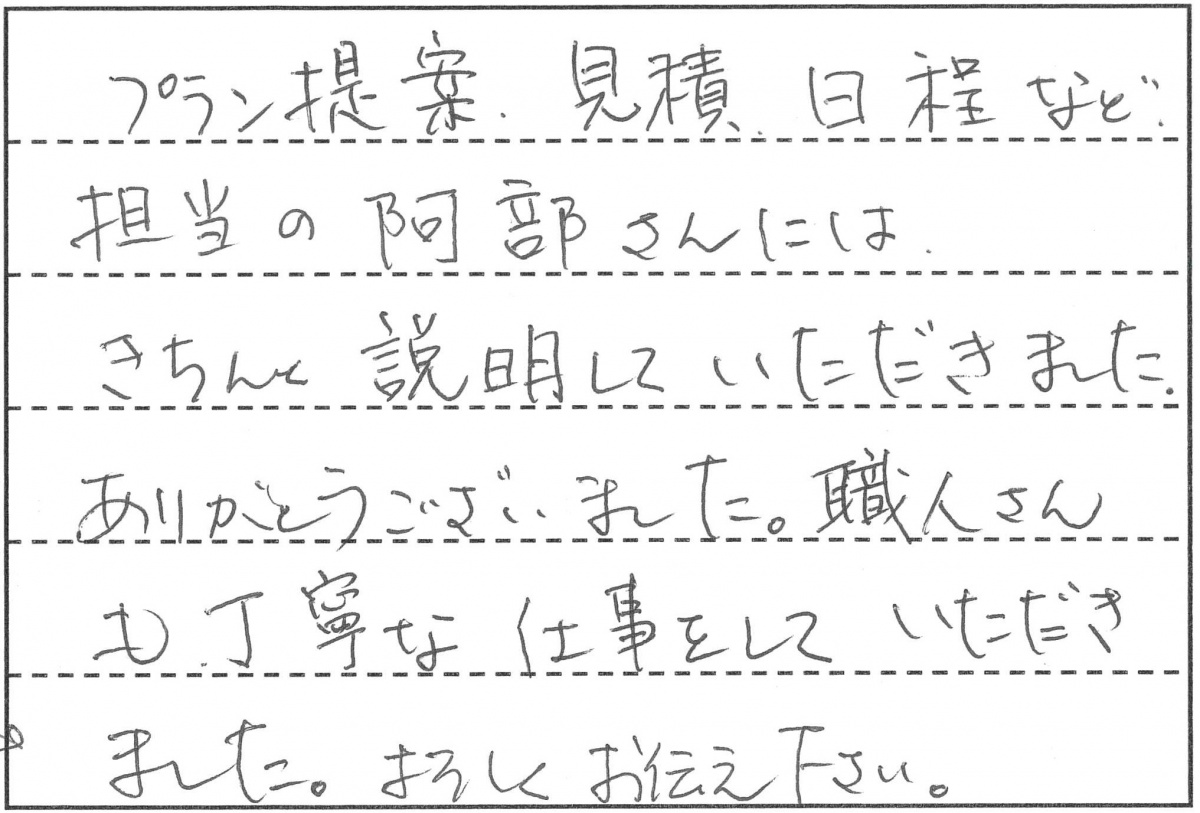 プラン提案、見積、日程など、
担当の阿部さんには、
きちんと説明していただきました。
ありがとうございました。職人さん
も、丁寧な仕事をしていただき
ました。よろしくお伝え下さい。